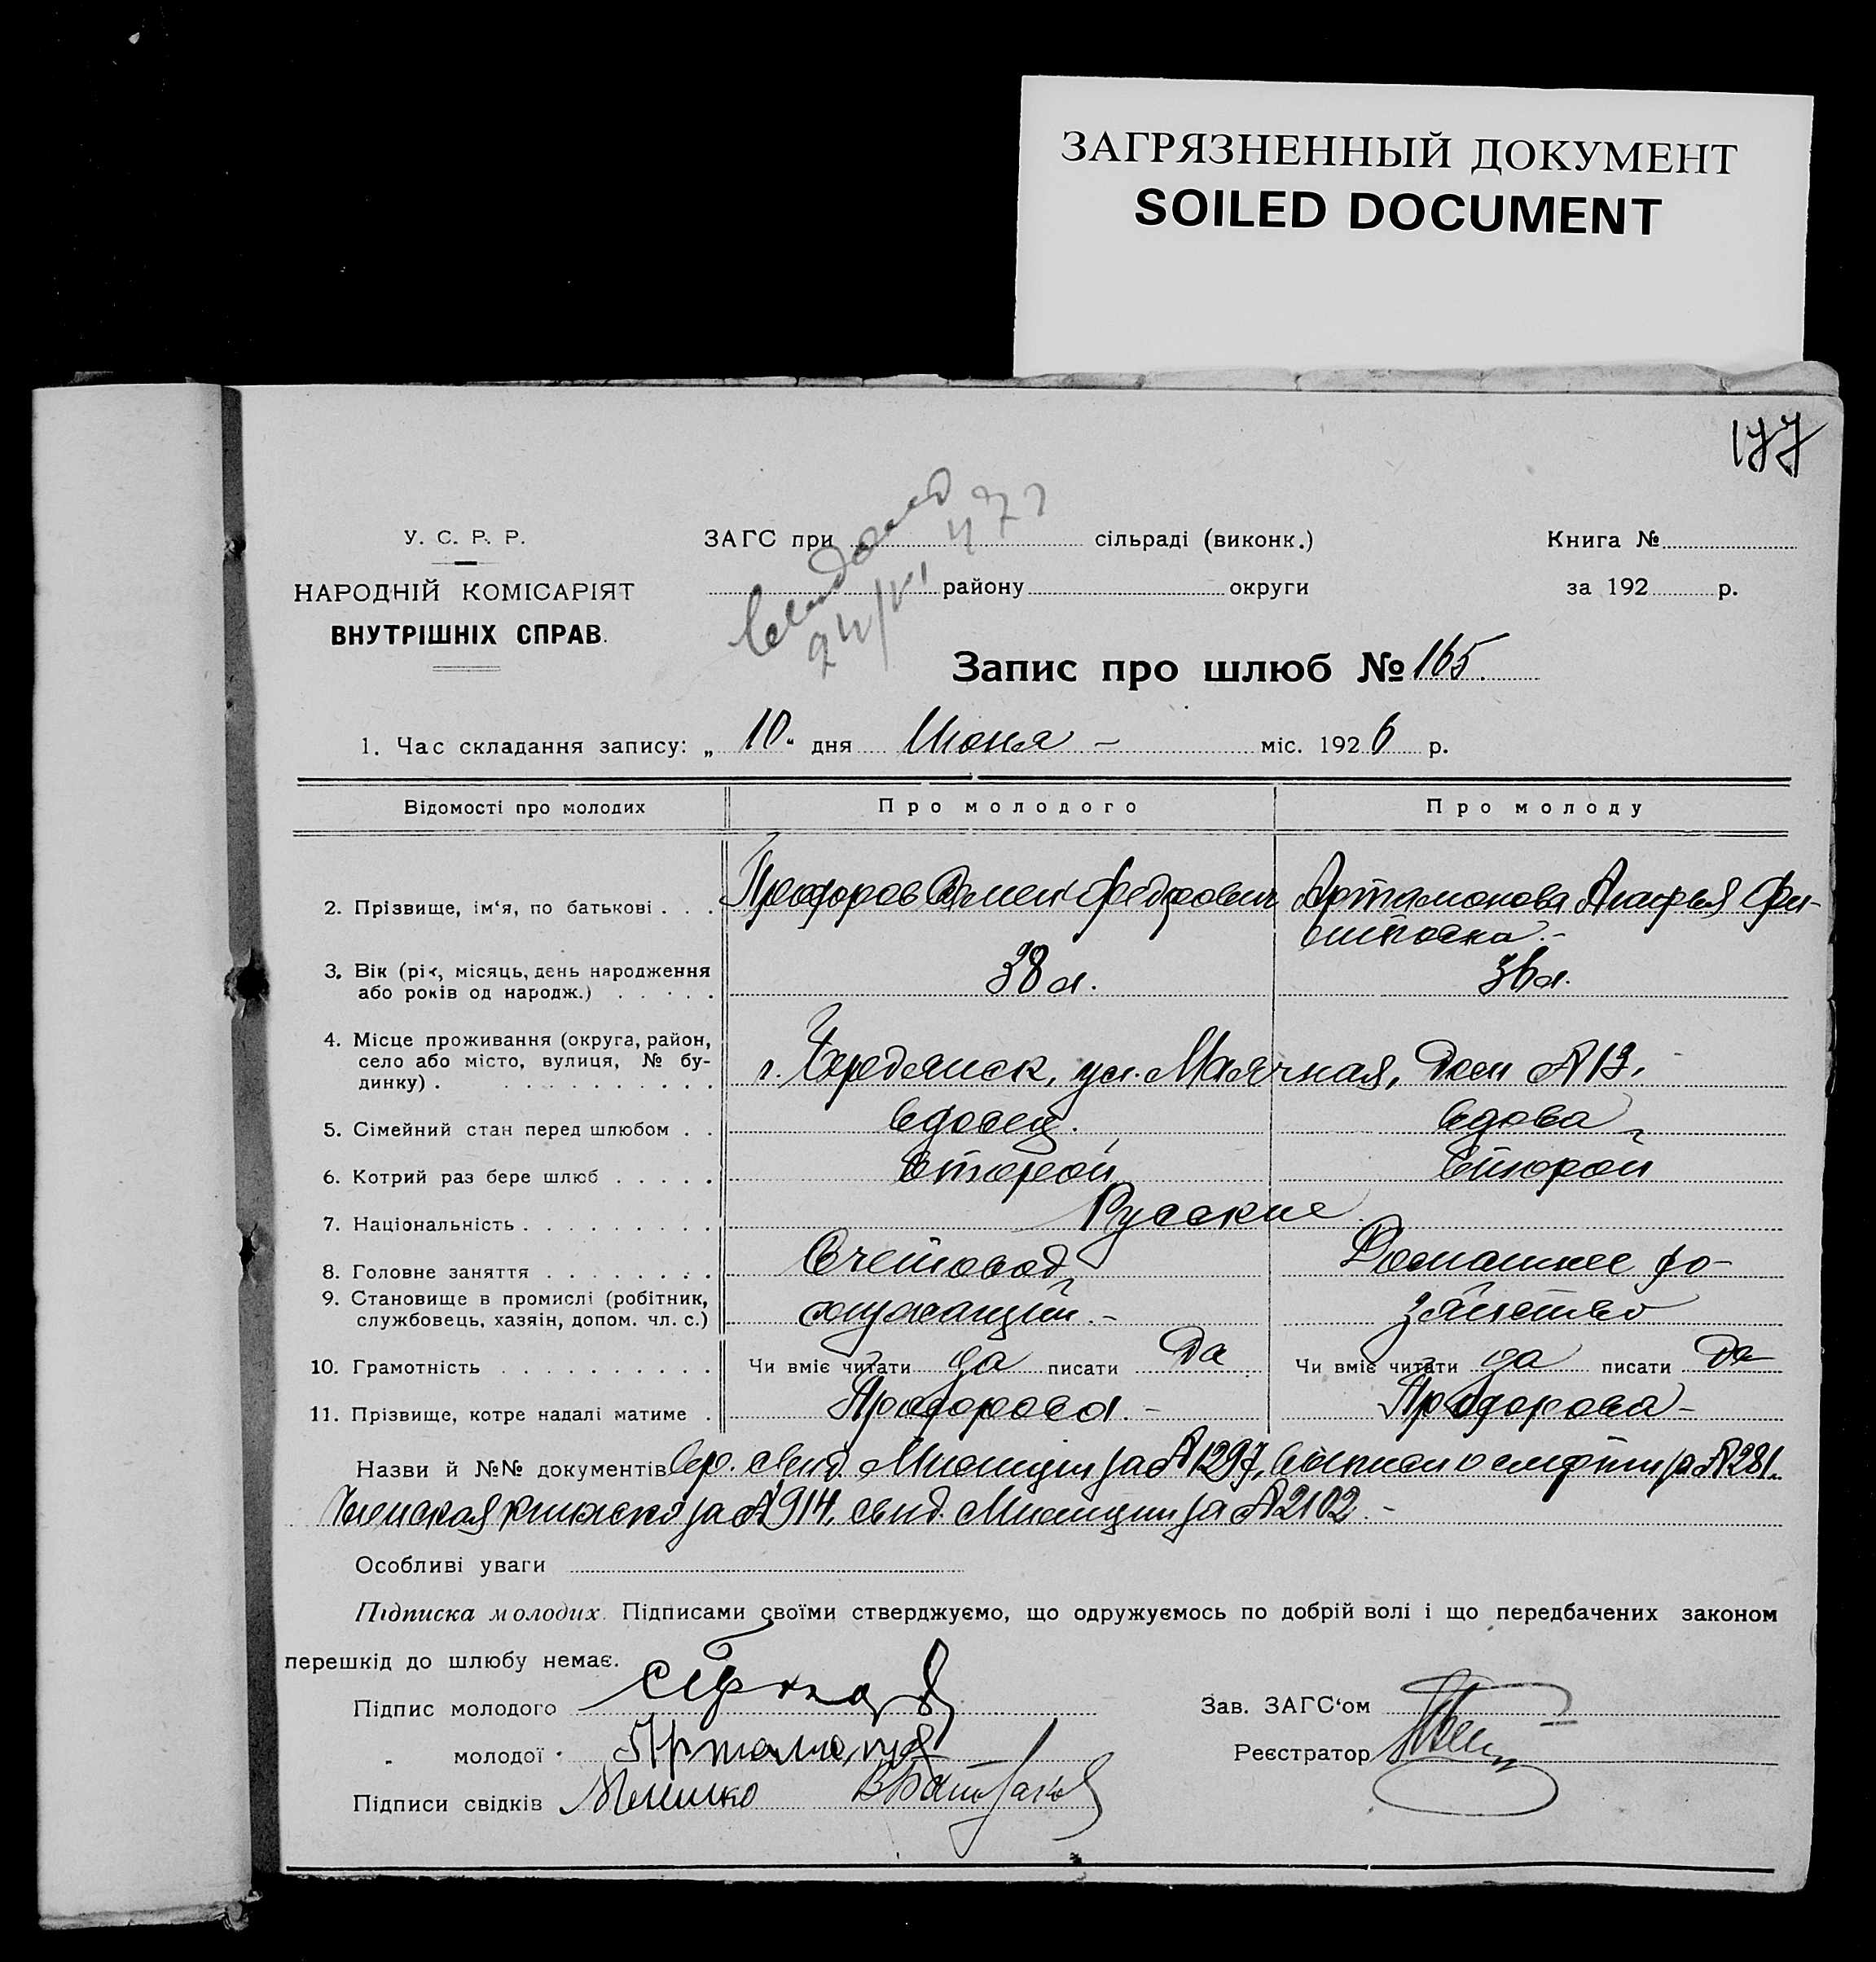 ЗАГРЯЗНЕННЫЙ ДОКУМЕНТ
SOILED DOCUMENT
177
У. С. Р. Р.
НАРОДНІЙ КОМІСАРІЯТ
ВНУТРІШНІХ СПРАВ.
ЗАГС при сільраді (виконк.)
району округи
Книга №
за 192 р.
24/VI
Запис про шлюб № 165.
1. Час складання запису: „ 10 " дня Июня - міс. 1926 р.
Відомості про молодих Про молодого Про молоду
2. Прізвище, ім'я, по батькові . . . Федорович Артамонова Агафья Фи-
3. Вік (рік, місяць, день народження
або років од народж.) . . . . . 38 л. 36 л.
4. Місце проживання (округа, район,
село або місто, вулиця, № бу-
динку) . . . . . . . . . . . г. Бердянск, ул. Маячная, Дом № 13.
5. Сімейний стан перед шлюбом . . вдовец. вдова
6. Котрий раз бере шлюб . . . . . второй второй
7. Національність . . . . . . . . . Русские
8. Головне заняття . . . . . . . . Счетовод Домашнее хо-
9. Становище в промислі (робітник,
службовець, хазяїн, допом. чл. с.) служащий. - зяйство
10. Грамотність . . . . . . . . . . Чи вміє читати да писати Да Чи вміє читати да писати Да
11. Прізвище, котре надалі матиме .
Назви й №№ документів Вр. свид. Милиции за № 1297, выписи о смерти за № 281.
Членская книжка за № 914, свид. Милиции за № 2102. -
Особливі уваги
Підписка молодих. Підписами своїми стверджуємо, що одружуємось по добрій волі і що передбачених законом
перешкід до шлюбу немає.
Підпис молодого
Зав. ЗАГС'ом
" молодої Артамонова
Реєстратор
Підписи свідків